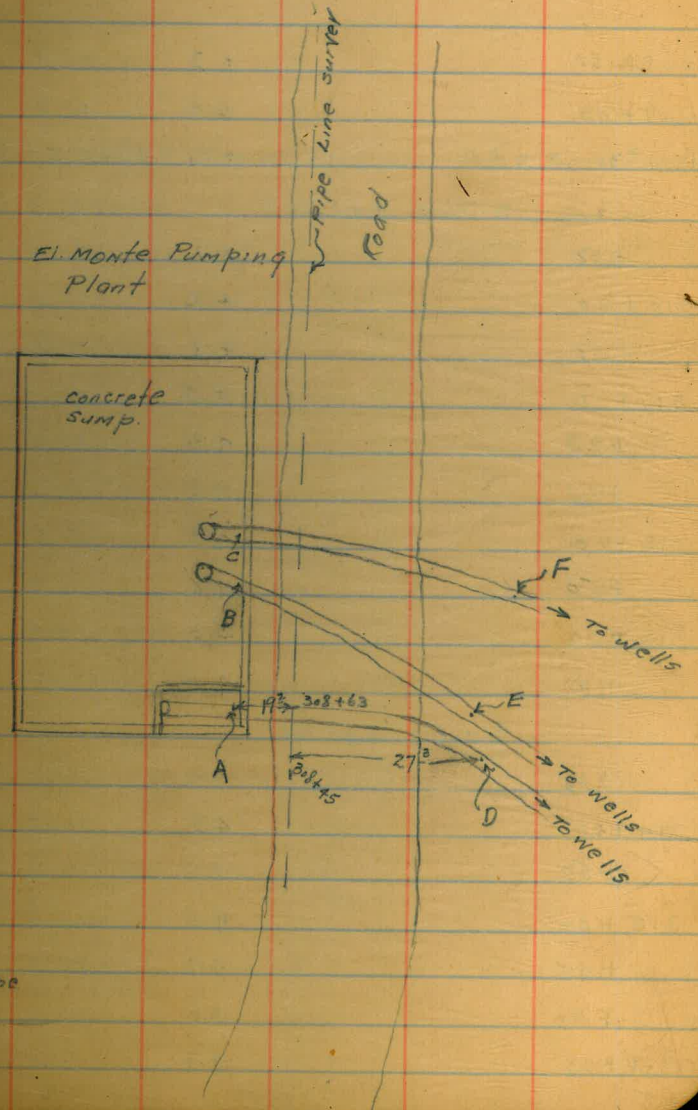 Pipe Line Survey
Road
El. Monte Pumping
Plant
concrete
sump.
C
F
To wells
B
E
19² 308+63
A
27³
308+45
D
To wells
To wells